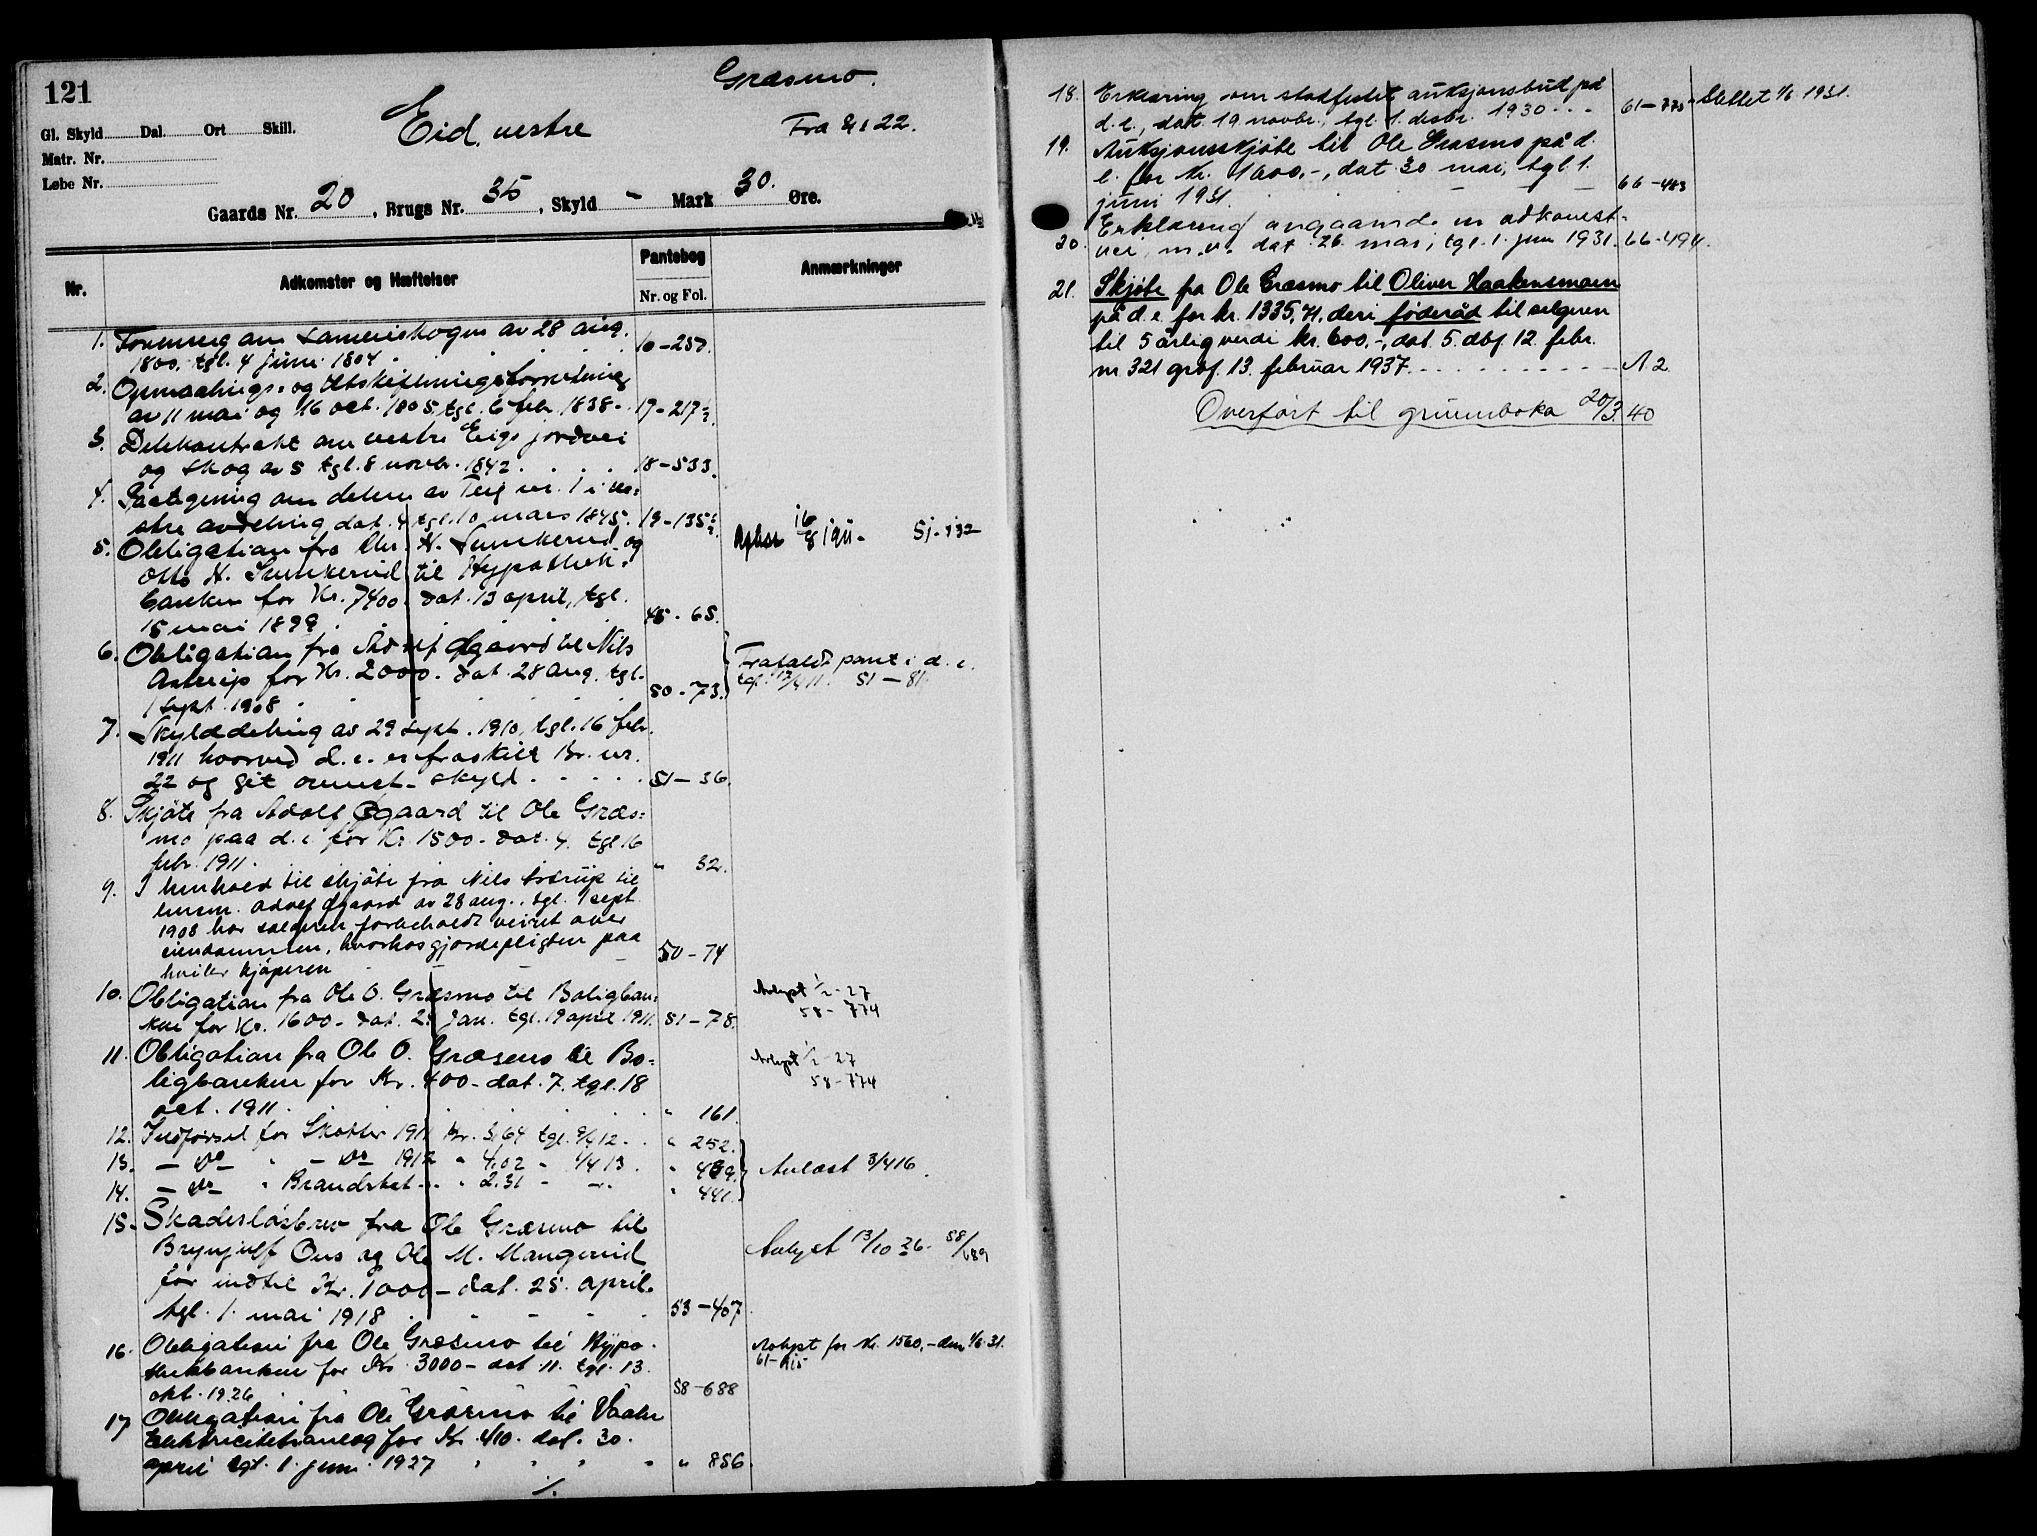 121
Græsmo.
Gl. Skyld Dal. Ort Skill.
Eid vestre
Fra 22.
Matr. Nr.
Løbe Nr.
Gaards Nr. 20, Brugs Nr. 35, Skyld - Mark 30. Øre.
Nr. Adkomster og Hæftelser Pantebog Nr. og Fol. Anmærkninger
1. Forening om av 28 aug.
1800. tgl. 4 juni 1804. 10-257.
2. Opmaalings- og Utskiftningsforretning
av 11 mai og 16 oct. 1805, tgl. 6 febr. 1838. 17-217½.
3. Delekontrakt om vestre Eigs jordvei
og skog av 5 tgl. 8 novbr. 1842. 18-533.
4. om delen av Teig nr. 1 i ve-
stre avdeling dat. 4 tgl. 10 mars 1845. 19-135½.
5. Obligation fra Chr. H. og
Otto H. til Hypothek-
banken for Kr. 7400. dat. 13 april, tgl.
15 mai 1899. 45-65.
Avlæst 16/8 1911- 51-132
6. Obligation fra Adolf Øgaard til Nils
Asterip for Kr. 2000. dat. 28 aug. tgl.
1 sept. 1908. 50-73.
Frafaldt pant i d. e.
tgl. 51-81.
7. Skylddeling av 29 sept. 1910, tgl. 16 febr.
1911 hvorved d. e. er fraskilt Br. nr.
22 og git skyld. 51-36.
8. Skjøte fra Adolf Øgaard til Ole Græs-
mo paa d. e. for Kr. 1500- dat. 4. tgl. 16
febr. 1911. " 32.
9. I henhold til skjøte fra Nils til
Adolf Øgaard av 28 aug., tgl. 1 sept
1908 har sælgeren forbeholdt veiret over
eiendommen, hvorhos gjærdepligten paa
hviler kjøperen 50-74
10. Obligation fra Ole O. Græsmo til Boligban-
ken for Kr. 1600- dat. jan. tgl. 19 april 1911. 51-78.
Avlyst ½-27
58-774
11. Obligation fra Ole O. Græsmo til Bo-
ligbanken for Kr. 400- dat. 7. tgl. 18
oct. 1911. " 161.
Avlyst ½-27
58-774
12. Utforsel for Skatter 1911 Kr. 3,64 tgl. 9/4 12. " 252.
13. - Do - " - Do 1912 " 4,02 - 1/4 13. " 439.
14. - Do - " Brandskat " 2.31 - -. " 441.
Avlæst 3/4 16
15. Skadesløsbrev fra Ole Græsmo til
Brynjulf Ous og Ole M. Mangerud
for indtil Kr. 1000- dat. 25. april
tgl. 1. mai 1918. 53-407
Avlyst 13/10 26. 58/689
16. Obligation fra Ole Græsmo til Hypo-
thekbanken for Kr. 3000- dat. 11. tgl. 13.
okt. 1926. 58-688
Avlyst for kr. 1560,- den 1/6 31.
17 Obligation fra Ole Græsmo til Vaaler
Elektricitetsanlæg for Kr. 410. dat. 30.
april tgl. 1. juni 1927 " 856.
./.
18. Erklæring om stadfestet auksjonsbud på
d. e., dat. 19 novbr., tgl. 1. desbr. 1930 61-775
Slettet 1/6 1931.
19. Auksjonsskjøte til Ole Græsmo på d.
e. for kr. 1600.-, dat. 30 mai, tgl 1.
juni 1931. 66-483
20. Erklæring angaaende en adkomst-
vei, m.v. dat. 26. mai, tgl. 1. juni 1931. 66-494.
21. Skjøte fra Ole Græsmo til Oliver Haakensmoen
på d. e. for kr. 1335,71, deri føderåd til selgeren
til 5 årlig verdi kr. 600.-, dat. 5. dbf. 12. febr.
nr 321 grbf. 13. februar 1937. A 2
Overført til grunnboka 20/3 40